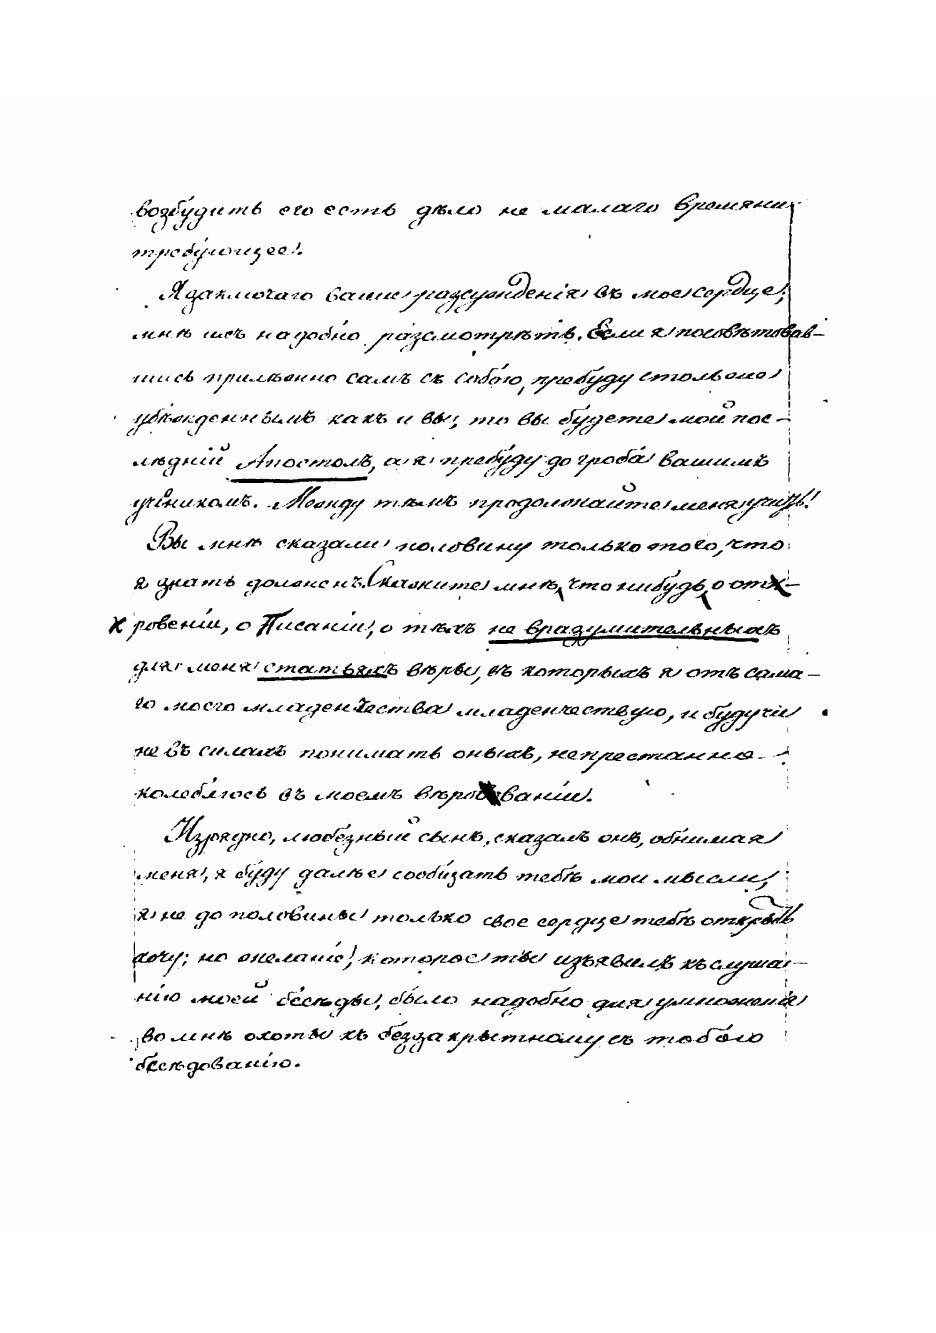 возбудить его есть дѣло не малаго времяни
требующее!.
Я заключаю ваши разсужденія въ мое сердце;
мнѣ ихъ надобно разсмотрѣть. Если я посовѣтовав-
шись прилѣжно самъ съ собою, пребуду столько
убѣжденнымъ какъ и вы; то вы будете мой пос-
лѣдній Апостолъ, а я пребуду до гроба вашимъ
ученикомъ. Между тѣмъ продолжайте меня учить!
Вы мнѣ сказали половину только того, что
я знать долженъ. Скажите мнѣ, что нибудь, о отк-
ровеніи, о Писаніи, о тѣхъ не вразумительныхъ
для меня статьяхъ вѣры, въ которыхъ я отъ сама-
го моего младенчества младенчествую, и будучи
не въ силахъ понимать оныхъ, непрестанно
колеблюсь въ моемъ вѣрованіи.
Изрядно, любезный сынъ, сказалъ онъ, обнимая
меня, я буду далѣе сообщать тебѣ мои мысли;
я не до половины только свое сердце тебѣ открыть
хочу; но желаніе, которое ты изъявилъ къ слуша-
нію моей бесѣды, было надобно для умноженія
во мнѣ охоты къ беззакрытному съ тобою
бесѣдованію.